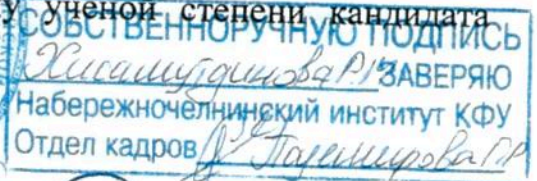 у ученой степени кандидата
СОБСТВЕННОРУЧНУЮ ПОДПИСЬ
Хисамутдинова Р.М ЗАВЕРЯЮ
Набережночелнинский институт КФУ
Отдел кадров